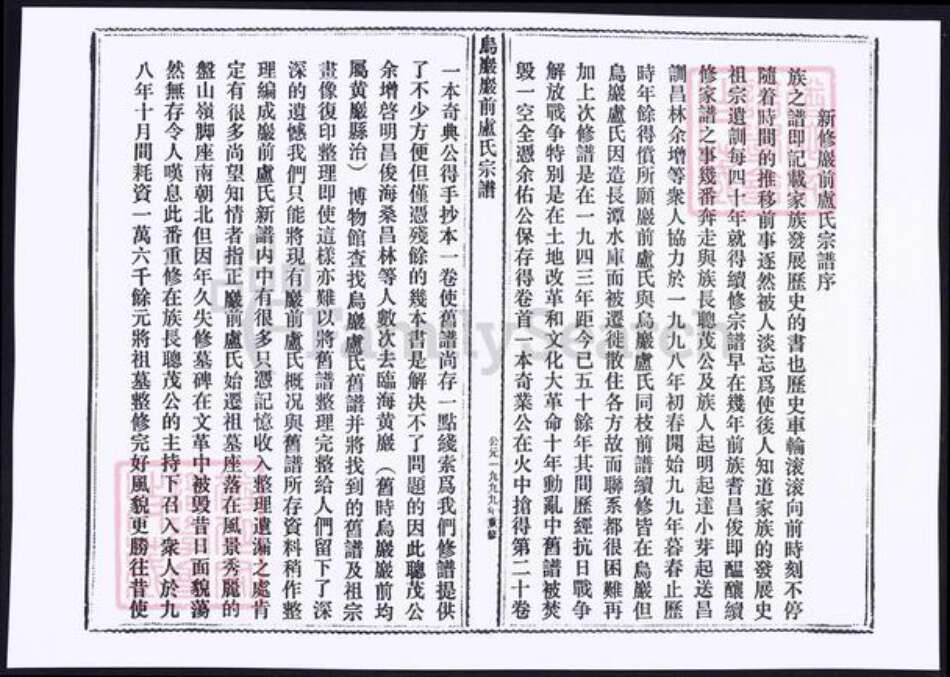 新修巖前盧氏宗譜序
族之譜即記載家族發展歷史的書也歷史車輪滚滚向前時刻不停
隨着時間的推移前事逐然被人淡忘爲使後人知道家族的發展史
祖宗遺訓每四十年就得續修宗譜早在幾年前族耆昌俊即醞釀續
修家譜之事幾番奔走與族長聰茂公及族人起明起達小芽起送昌
訓昌林余增等衆人協力於一九九八年初春開始九九年暮春止歷
時年餘得償所願巖前盧氏與烏巖盧氏同枝前譜續修皆在烏巖但
烏巖盧氏因造長潭水庫而被遷徙散住各方故而聯系都很困難再
加上次修譜是在一九四三年距今已五十餘年其間歷經抗日戰争
解放戰争特别是在土地改革和文化大革命十年動亂中舊譜被焚
毁一空全憑余佑公保存得卷首一本奇業公在火中搶得第二十卷
烏巖巖前盧氏宗譜
公元一九九九年重修
一本奇典公得手抄本一卷使舊譜尚存一點綫索爲我們修譜提供
了不少方便但僅憑殘餘的幾本書是解决不了問題的因此聰茂公
余增啓明昌俊海桑昌林等人數次去臨海黄巖（舊時烏巖巖前均
屬黄巖縣治）博物館查找烏巖盧氏舊譜并將找到的舊譜及祖宗
畫像復印整理即使這樣亦難以將舊譜整理完整給人們留下了深
深的遺憾我們只能將現有巖前盧氏概况與舊譜所存資料稍作整
理編成巖前盧氏新譜内中有很多只憑記憶收入整理遺漏之處肯
定有很多尚望知情者指正巖前盧氏始遷祖墓座落在風景秀麗的
盤山嶺脚座南朝北但因年久失修墓碑在文革中被毁昔日面貌蕩
然無存令人嘆息此番重修在族長聰茂公的主持下召入衆人於九
八年十月間耗資一萬六千餘元將祖墓整修完好風貌更勝往昔使
FamilySearch